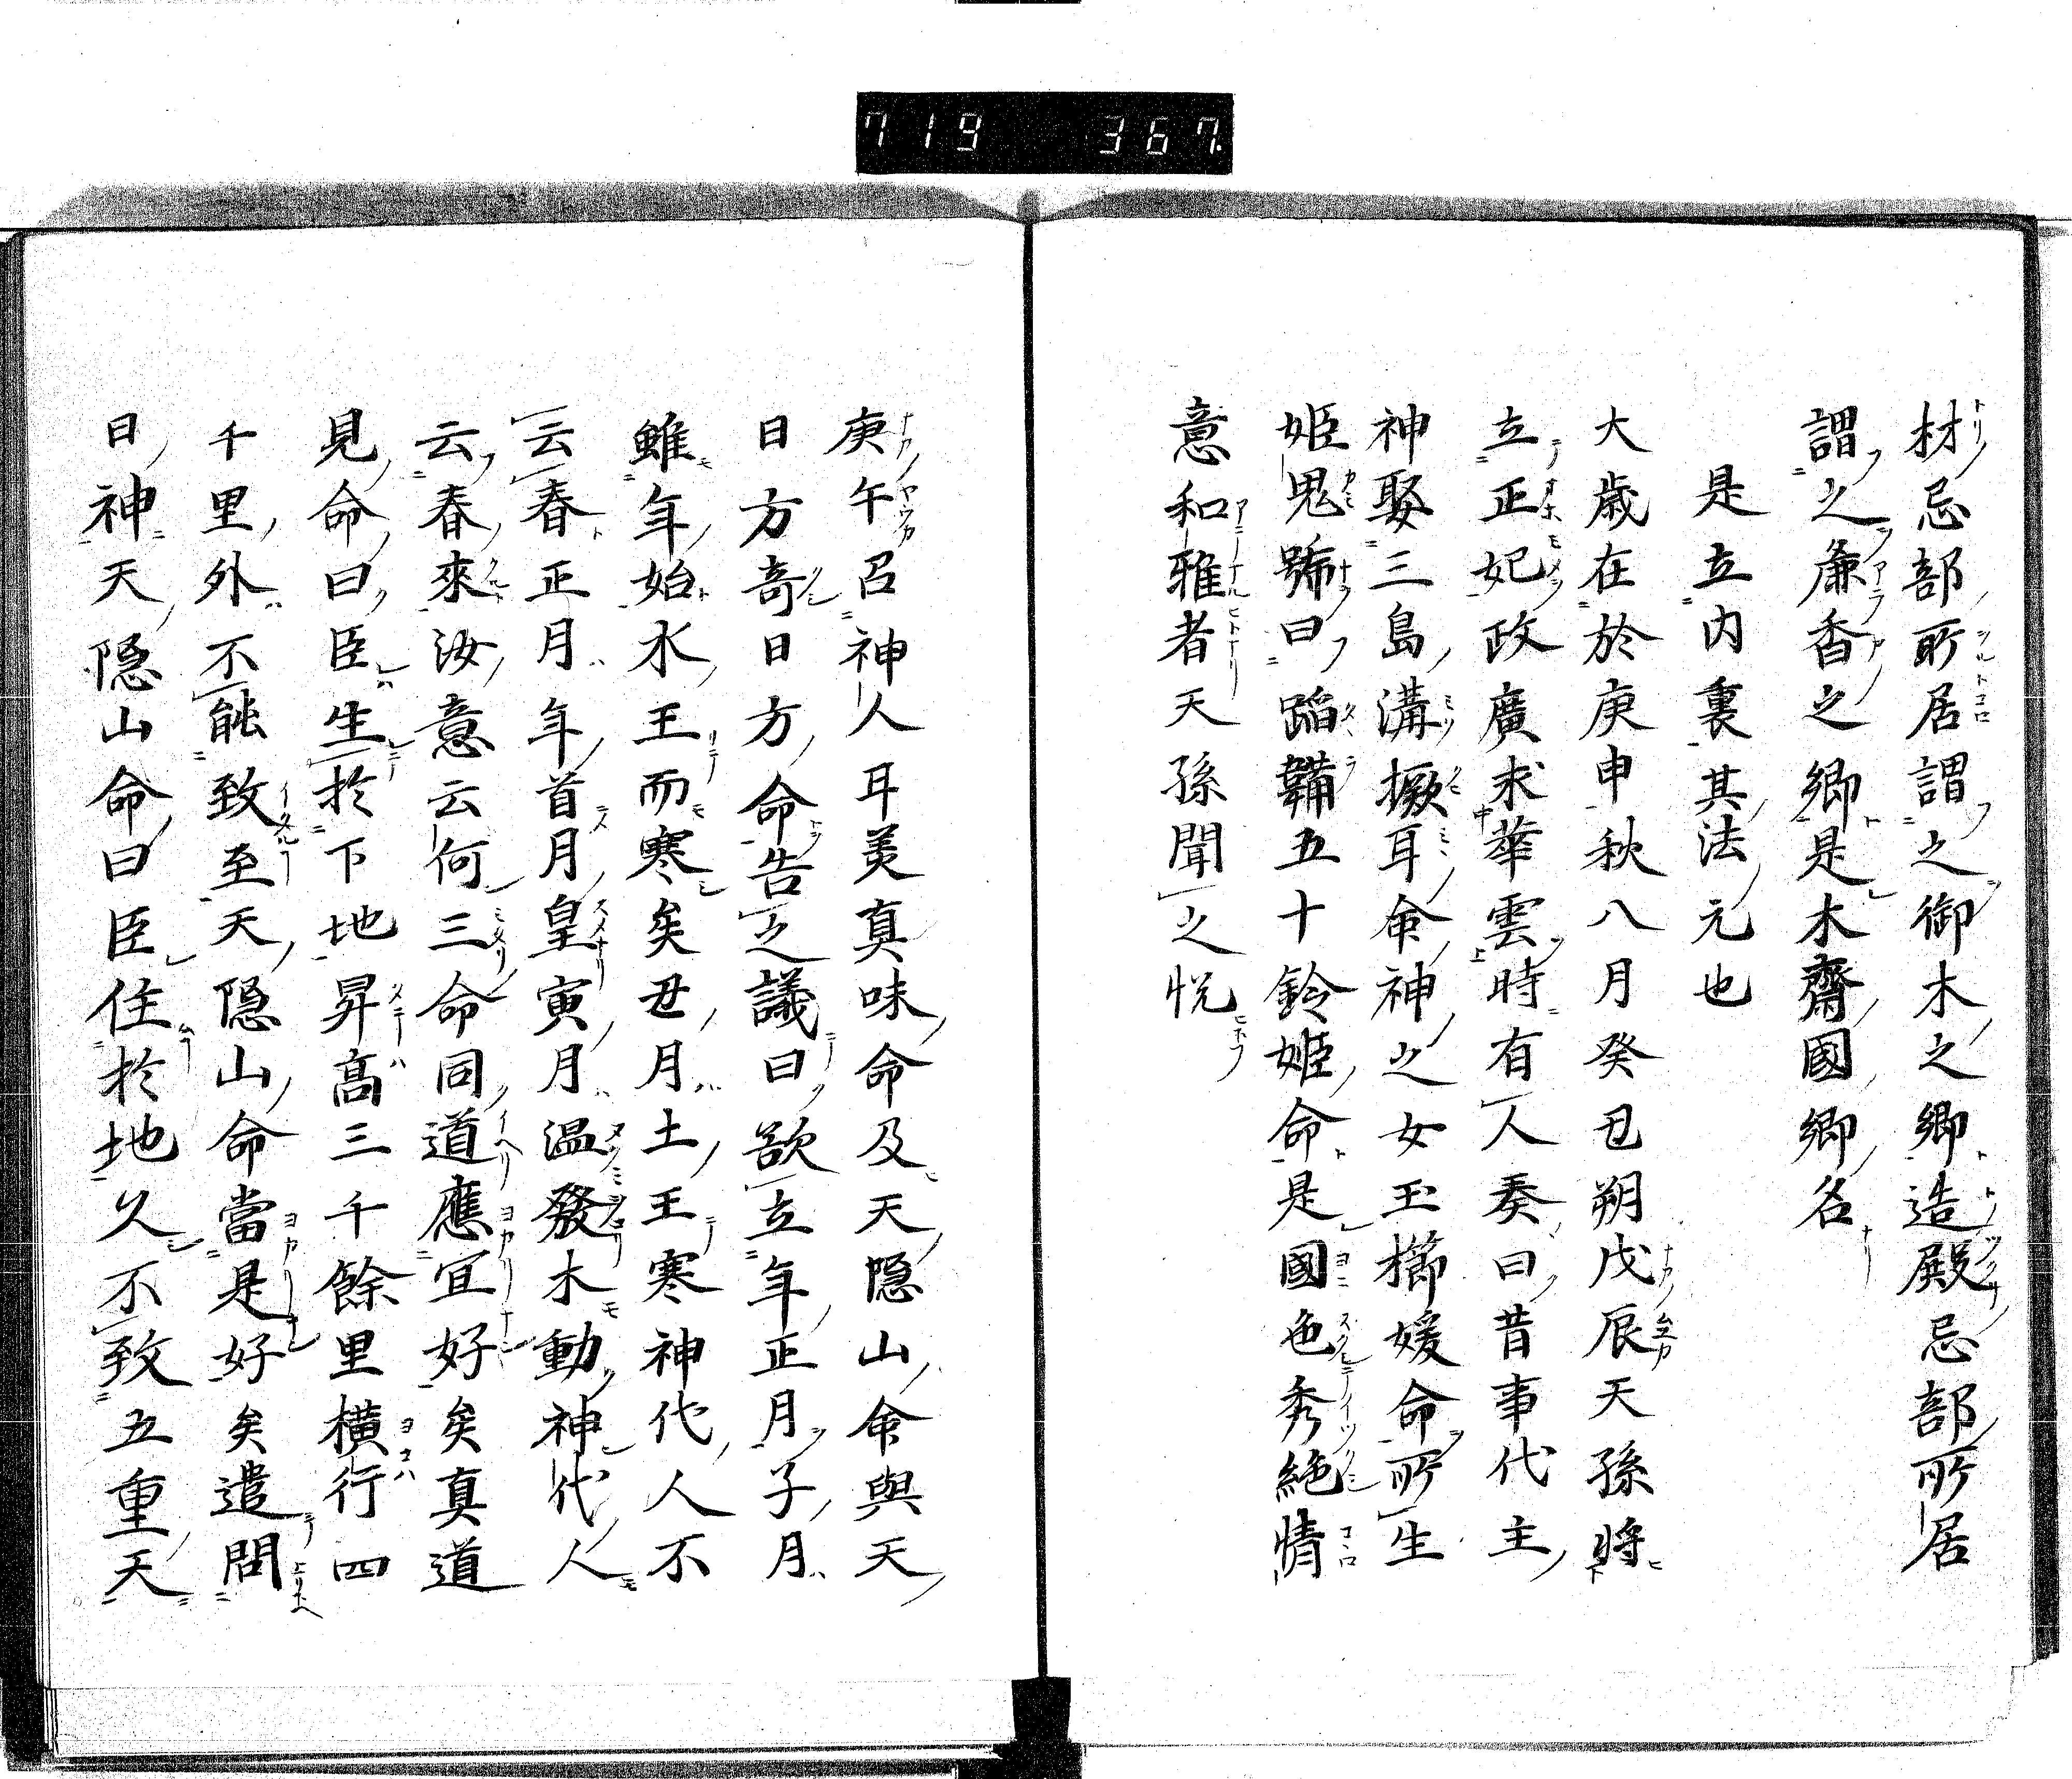 719 367.
材忌部所居謂之御木之郷造殿忌部所居
謂之麁香之郷是木齋國郷名
是立内裏其法元也
大歳在於庚申秋八月癸丑朔戊辰天孫将
立正妃政廣求華雲時有人奏曰昔事代主
神娶三島溝撅耳命神之女玉櫛媛命所生
姫鬼號曰蹈韛五十鈴姫命是國色秀絶情
意和雅者天孫聞之悦
庚午召神人耳美真味命及天隠山命與天
日方奇日方命告之議曰欲立年正月子月
雖年始水王而寒矣丑月土王寒神代人不
云春正月年首月皇寅月温發木動神代人
云春來汝意云何三命同道應宜好矣真道
見命曰臣生於下地昇高三千餘里横行四
千里外不能致至天隠山命當是好矣遣問
日神天隠山命曰臣住於地久不致五重天